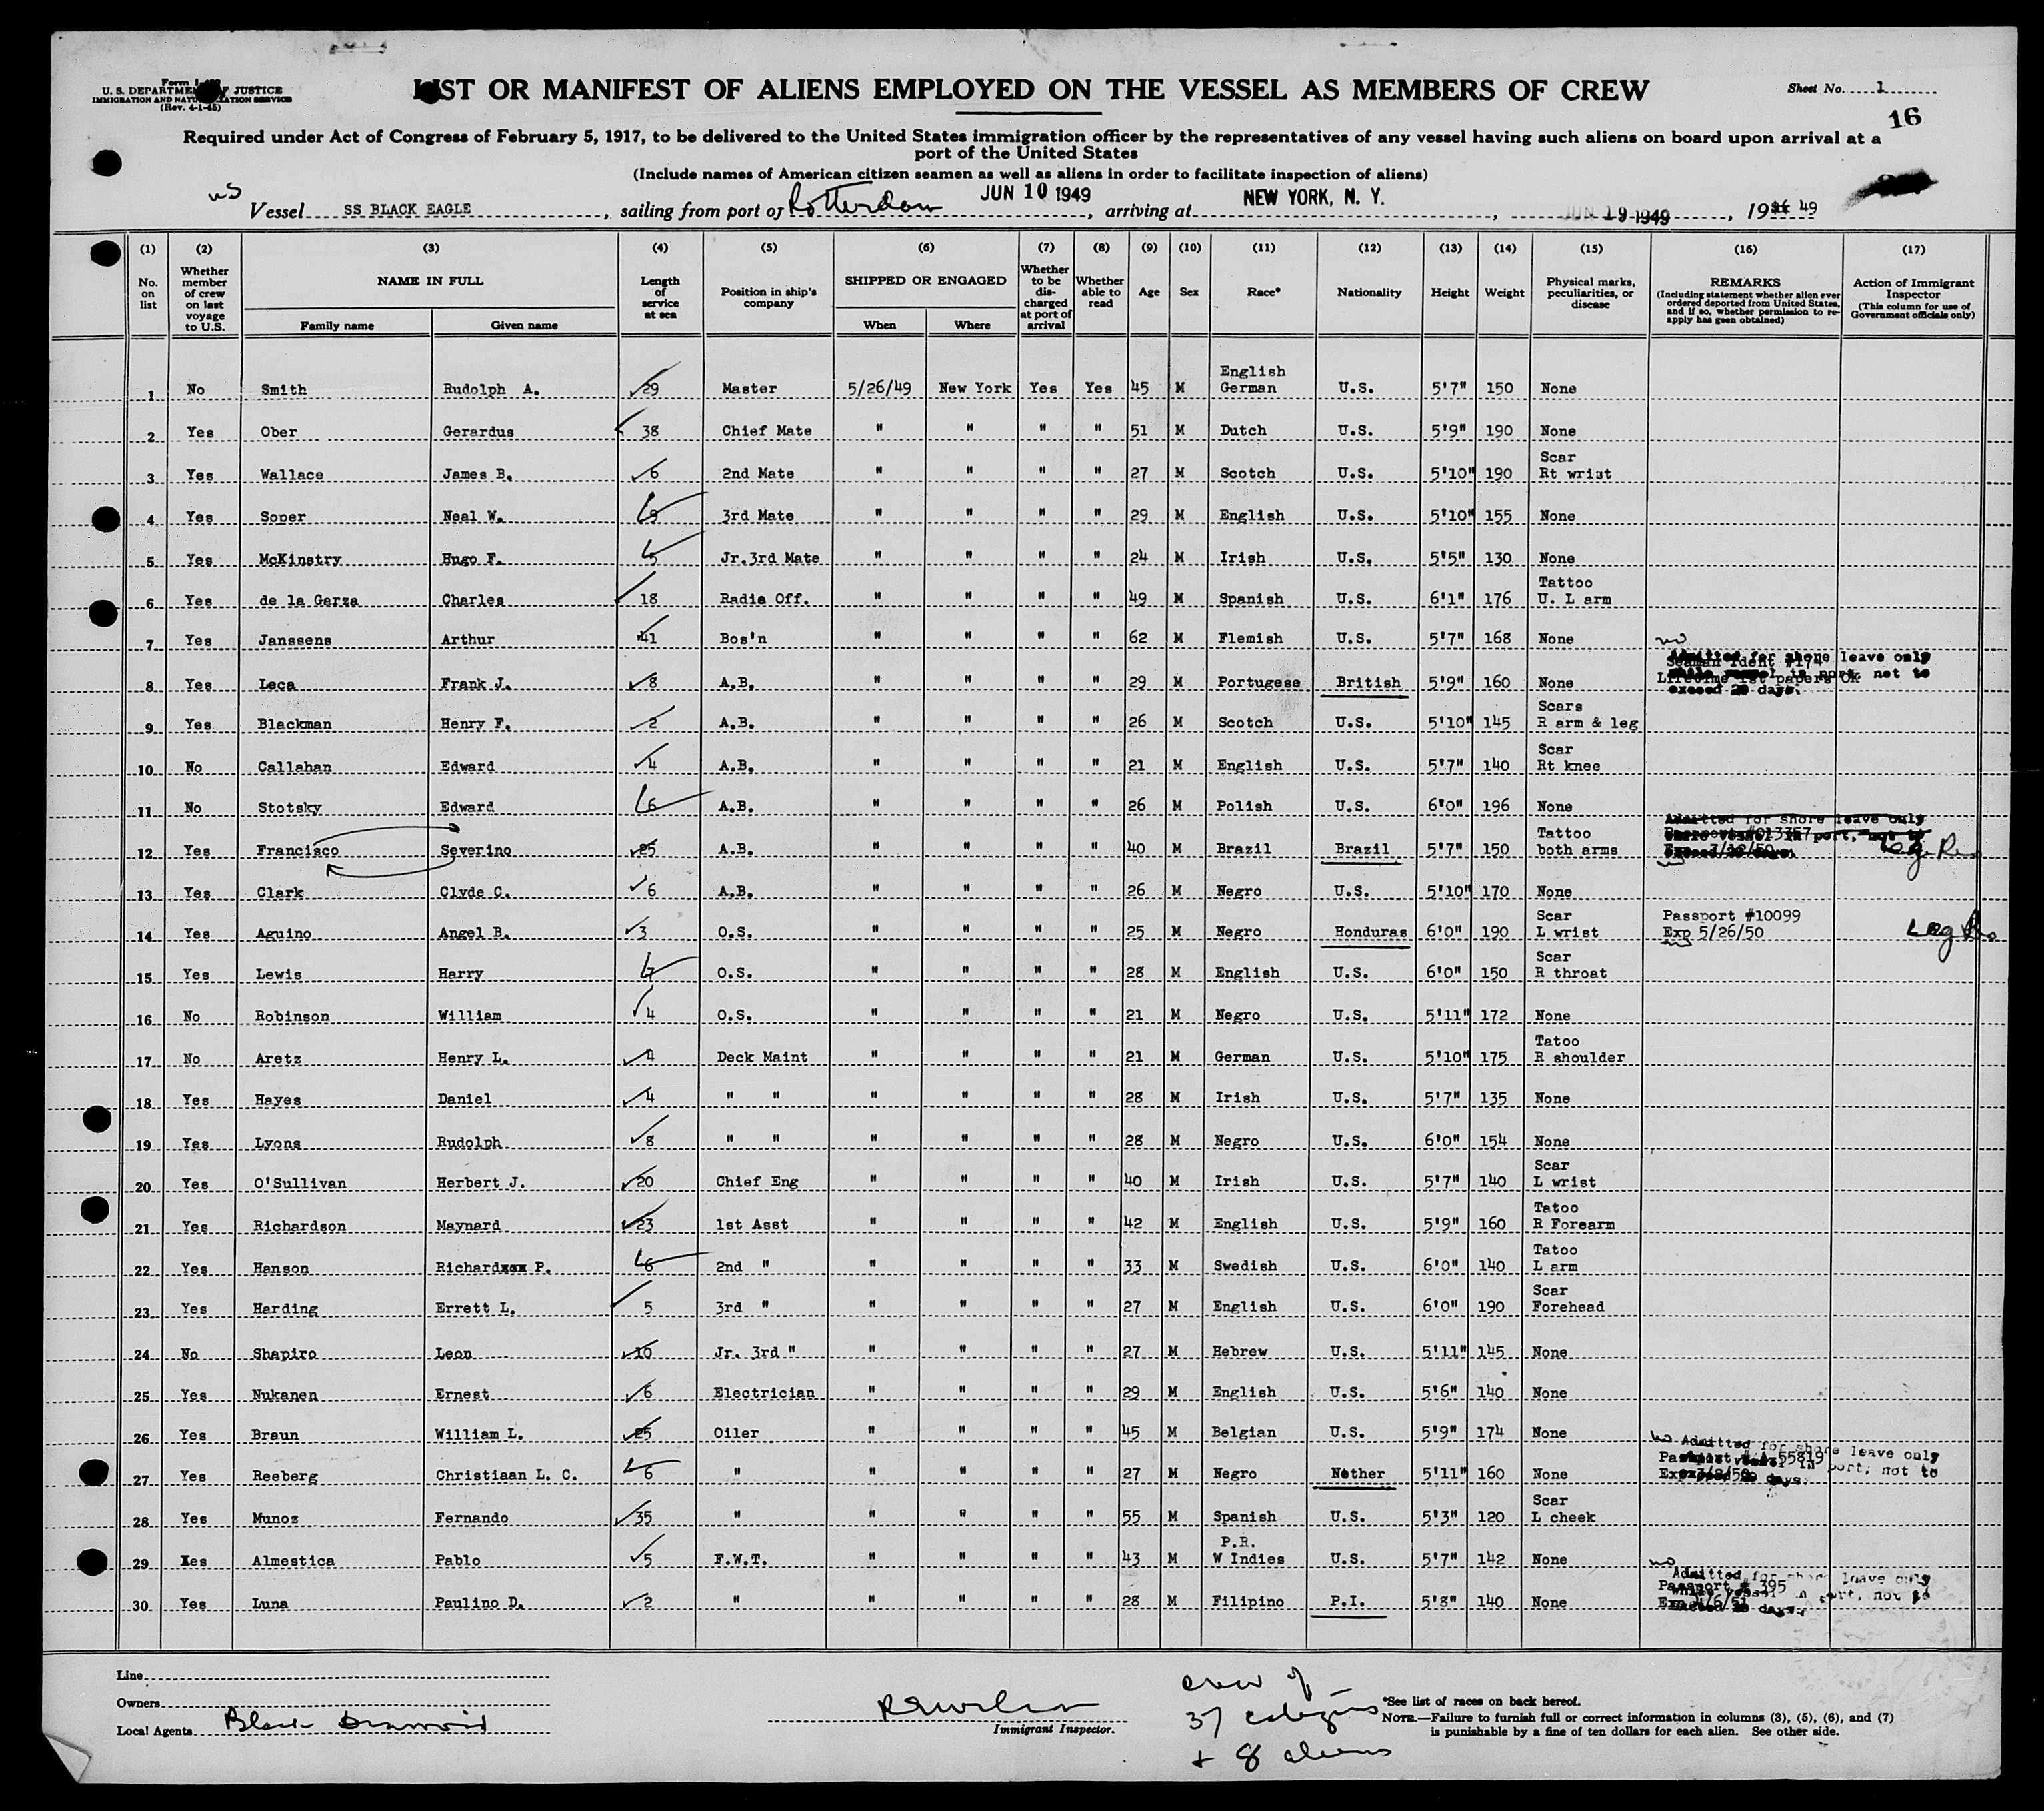 Form I-480
U. S. DEPARTMENT OF JUSTICE
IMMIGRATION AND NATURALIZATION SERVICE
(Rev. 4-1-45)
LIST OR MANIFEST OF ALIENS EMPLOYED ON THE VESSEL AS MEMBERS OF CREW
Sheet No. 1
16
Required under Act of Congress of February 5, 1917, to be delivered to the United States immigration officer by the representatives of any vessel having such aliens on board upon arrival at a
port of the United States
(Include names of American citizen seamen as well as aliens in order to facilitate inspection of aliens)
US Vessel SS BLACK EAGLE , sailing from port of Rotterdam JUN 10 1949 , arriving at NEW YORK, N. Y. , JUN 19 1949 , 19 49
(1) (2) (3) (4) (5) (6) (7) (8) (9) (10) (11) (12) (13) (14) (15) (16) (17)
No. on list
Whether member of crew on last voyage to U.S.
NAME IN FULL
Family name Given name
Length of service at sea
Position in ship's company
SHIPPED OR ENGAGED
When Where
Whether to be discharged at port of arrival
Whether able to read
Age
Sex
Race*
Nationality
Height
Weight
Physical marks, peculiarities, or disease
REMARKS
(Including statement whether alien ever ordered deported from United States, and if so, whether permission to reapply has been obtained)
Action of Immigrant Inspector
(This column for use of Government officials only)
1 No Smith Rudolph A. 29 Master 5/26/49 New York Yes Yes 45 M English German U.S. 5'7" 150 None
2 Yes Ober Gerardus 38 Chief Mate " " " " 51 M Dutch U.S. 5'9" 190 None
3 Yes Wallace James B. 6 2nd Mate " " " " 27 M Scotch U.S. 5'10" 190 Scar Rt wrist
4 Yes Soper Neal W. 9 3rd Mate " " " " 29 M English U.S. 5'10" 155 None
5 Yes McKinstry Hugo F. 5 Jr.3rd Mate " " " " 24 M Irish U.S. 5'5" 130 None
6 Yes de la Garza Charles 18 Radio Off. " " " " 49 M Spanish U.S. 6'1" 176 Tattoo U. L arm
7 Yes Janssens Arthur 41 Bos'n " " " " 62 M Flemish U.S. 5'7" 168 None
8 Yes Leca Frank J. 8 A.B. " " " " 29 M Portugese British 5'9" 160 None no Admitted for shore leave only Seaman Ident #174 while vessel in port, not to Lifetime 1st papers OK exceed 29 days.
9 Yes Blackman Henry F. 2 A.B. " " " " 26 M Scotch U.S. 5'10" 145 Scars R arm & leg
10 No Callahan Edward 4 A.B. " " " " 21 M English U.S. 5'7" 140 Scar Rt knee
11 No Stotsky Edward 6 A.B. " " " " 26 M Polish U.S. 6'0" 196 None
12 Yes Francisco Severino 25 A.B. " " " " 40 M Brazil Brazil 5'7" 150 Tattoo both arms Admitted for shore leave only Passport #013357 in port, not to Exp 3/12/50 Leg Res
13 Yes Clark Clyde C. 6 A.B. " " " " 26 M Negro U.S. 5'10" 170 None
14 Yes Aguino Angel B. 3 O.S. " " " " 25 M Negro Honduras 6'0" 190 Scar L wrist Passport #10099 Exp 5/26/50 no Leg Res
15 Yes Lewis Harry 7 O.S. " " " " 28 M English U.S. 6'0" 150 Scar R throat
16 No Robinson William 4 O.S. " " " " 21 M Negro U.S. 5'11" 172 None
17 No Aretz Henry L. 4 Deck Maint " " " " 21 M German U.S. 5'10" 175 Tatoo R shoulder
18 Yes Hayes Daniel 4 " " " " " " 28 M Irish U.S. 5'7" 135 None
19 Yes Lyons Rudolph 8 " " " " " " 28 M Negro U.S. 6'0" 154 None
20 Yes O'Sullivan Herbert J. 20 Chief Eng " " " " 40 M Irish U.S. 5'7" 140 Scar L wrist
21 Yes Richardson Maynard 23 1st Asst " " " " 42 M English U.S. 5'9" 160 Tatoo R Forearm
22 Yes Hanson Richardxxx P. 6 2nd " " " " " 33 M Swedish U.S. 6'0" 140 Tatoo L arm
23 Yes Harding Errett L. 5 3rd " " " " " 27 M English U.S. 6'0" 190 Scar Forehead
24 No Shapiro Leon 10 Jr. 3rd " " " " " 27 M Hebrew U.S. 5'11" 145 None
25 Yes Nukanen Ernest 6 Electrician " " " " 29 M English U.S. 5'6" 140 None
26 Yes Braun William L. 25 Oiler " " " " 45 M Belgian U.S. 5'9" 174 None
27 Yes Reeberg Christiaan L. C. 6 " " " " " 27 M Negro Nether 5'11" 160 None no Admitted for shore leave only Passport # A 55819 in port, not to Exp 3/2/50 days.
28 Yes Munoz Fernando 35 " " " " " 55 M Spanish U.S. 5'3" 120 Scar L cheek
29 Yes Almestica Pablo 5 F.W.T. " " " " 43 M P.R. W Indies U.S. 5'7" 142 None
30 Yes Luna Paulino D. 2 " " " " " 28 M Filipino P.I. 5'8" 140 None no Admitted for shore leave only Passport # 395 in port, not to Exp 4/6/51 days.
Line
Owners
Local Agents Black Diamond
Immigrant Inspector.
crew of
37 citizens
+ 8 aliens
*See list of races on back hereof.
NOTE.—Failure to furnish full or correct information in columns (3), (5), (6), and (7)
is punishable by a fine of ten dollars for each alien. See other side.